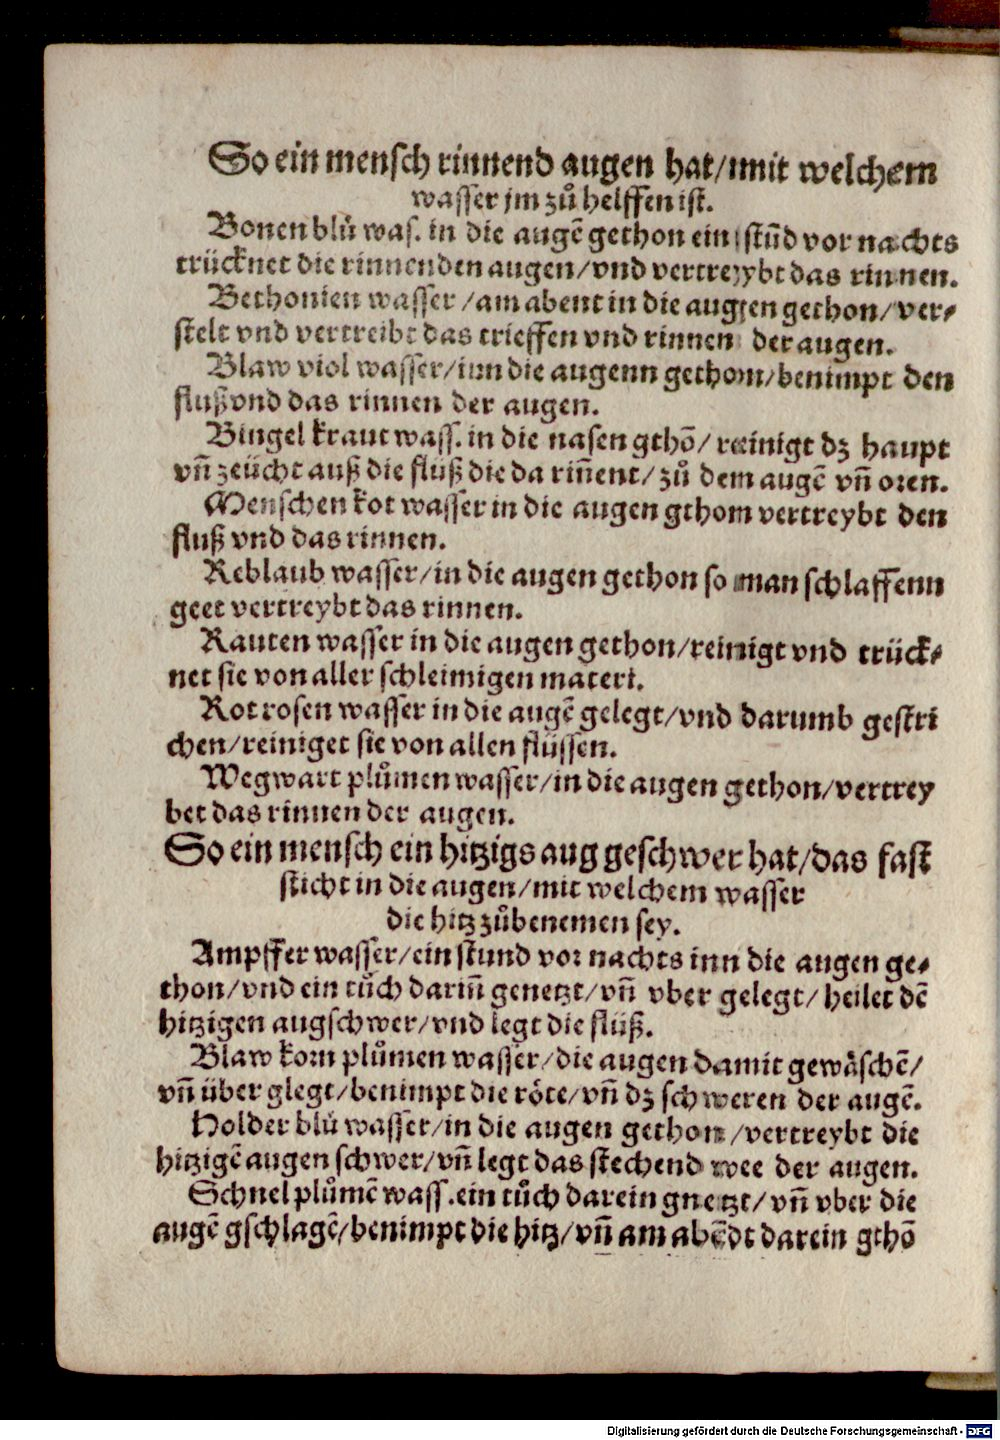 So ein mensch rinnend augen hat/mit welchem
wasser jm zů helffen ist.
Bonen blů was. in die augē gethon ein stūd vor nachts
trücknet die rinnenden augen/vnd vertreybt das rinnen.
Bethonien wasser/am abent in die augen gethon/ver⸗
stelt vnd vertreibt das trieffen vnd rinnen der augen.
Blaw viol wasser/inn die augenn gethom/benimpt den
fluß vnd das rinnen der augen.
Bingel kraut wass. in die nasen gthō/ reinigt dz haupt
vn̄ zeücht auß die flüß die da rin̄ent/ zů dem augē vn̄ oren.
Menschen kot wasser in die augen gthom vertreybt den
fluß vnd das rinnen.
Reblaub wasser/in die augen gethon so man schlaffenn
geet vertreybt das rinnen.
Rauten wasser in die augen gethon/reinigt vnd trück⸗
net sie von aller schleimigen materi.
Rot rosen wasser in die augē gelegt/vnd darumb gestri
chen/reiniget sie von allen flüssen.
Wegwart plůmen wasser/in die augen gethon/vertrey
bet das rinnen der augen.
So ein mensch ein hitzigs aug geschwer hat/das fast
sticht in die augen/mit welchem wasser
die hitz zůbenemen sey.
Ampffer wasser/ein stund vor nachts inn die augen ge⸗
thon/vnd ein tůch darin̄ genetzt/vn̄ vber gelegt/ heilet dē
hitzigen augschwer/vnd legt die flüß.
Blaw korn plůmen wasser/die augen damit gewäschē/
vn̄ über glegt/benimpt die röte/vn̄ dz schweren der augē.
Holder blů wasser/in die augen gethon/vertreybt die
hitzigē augen schwer/vn̄ legt das stechend wee der augen.
Schnel plůmē wass.ein tůch darein gnetzt/ vn̄ vber die
augē gschlagē/benimpt die hitz/vn̄ am abēdt darein gthō
Digitalisierung gefördert durch die Deutsche Forschungsgemeinschaft - DFG